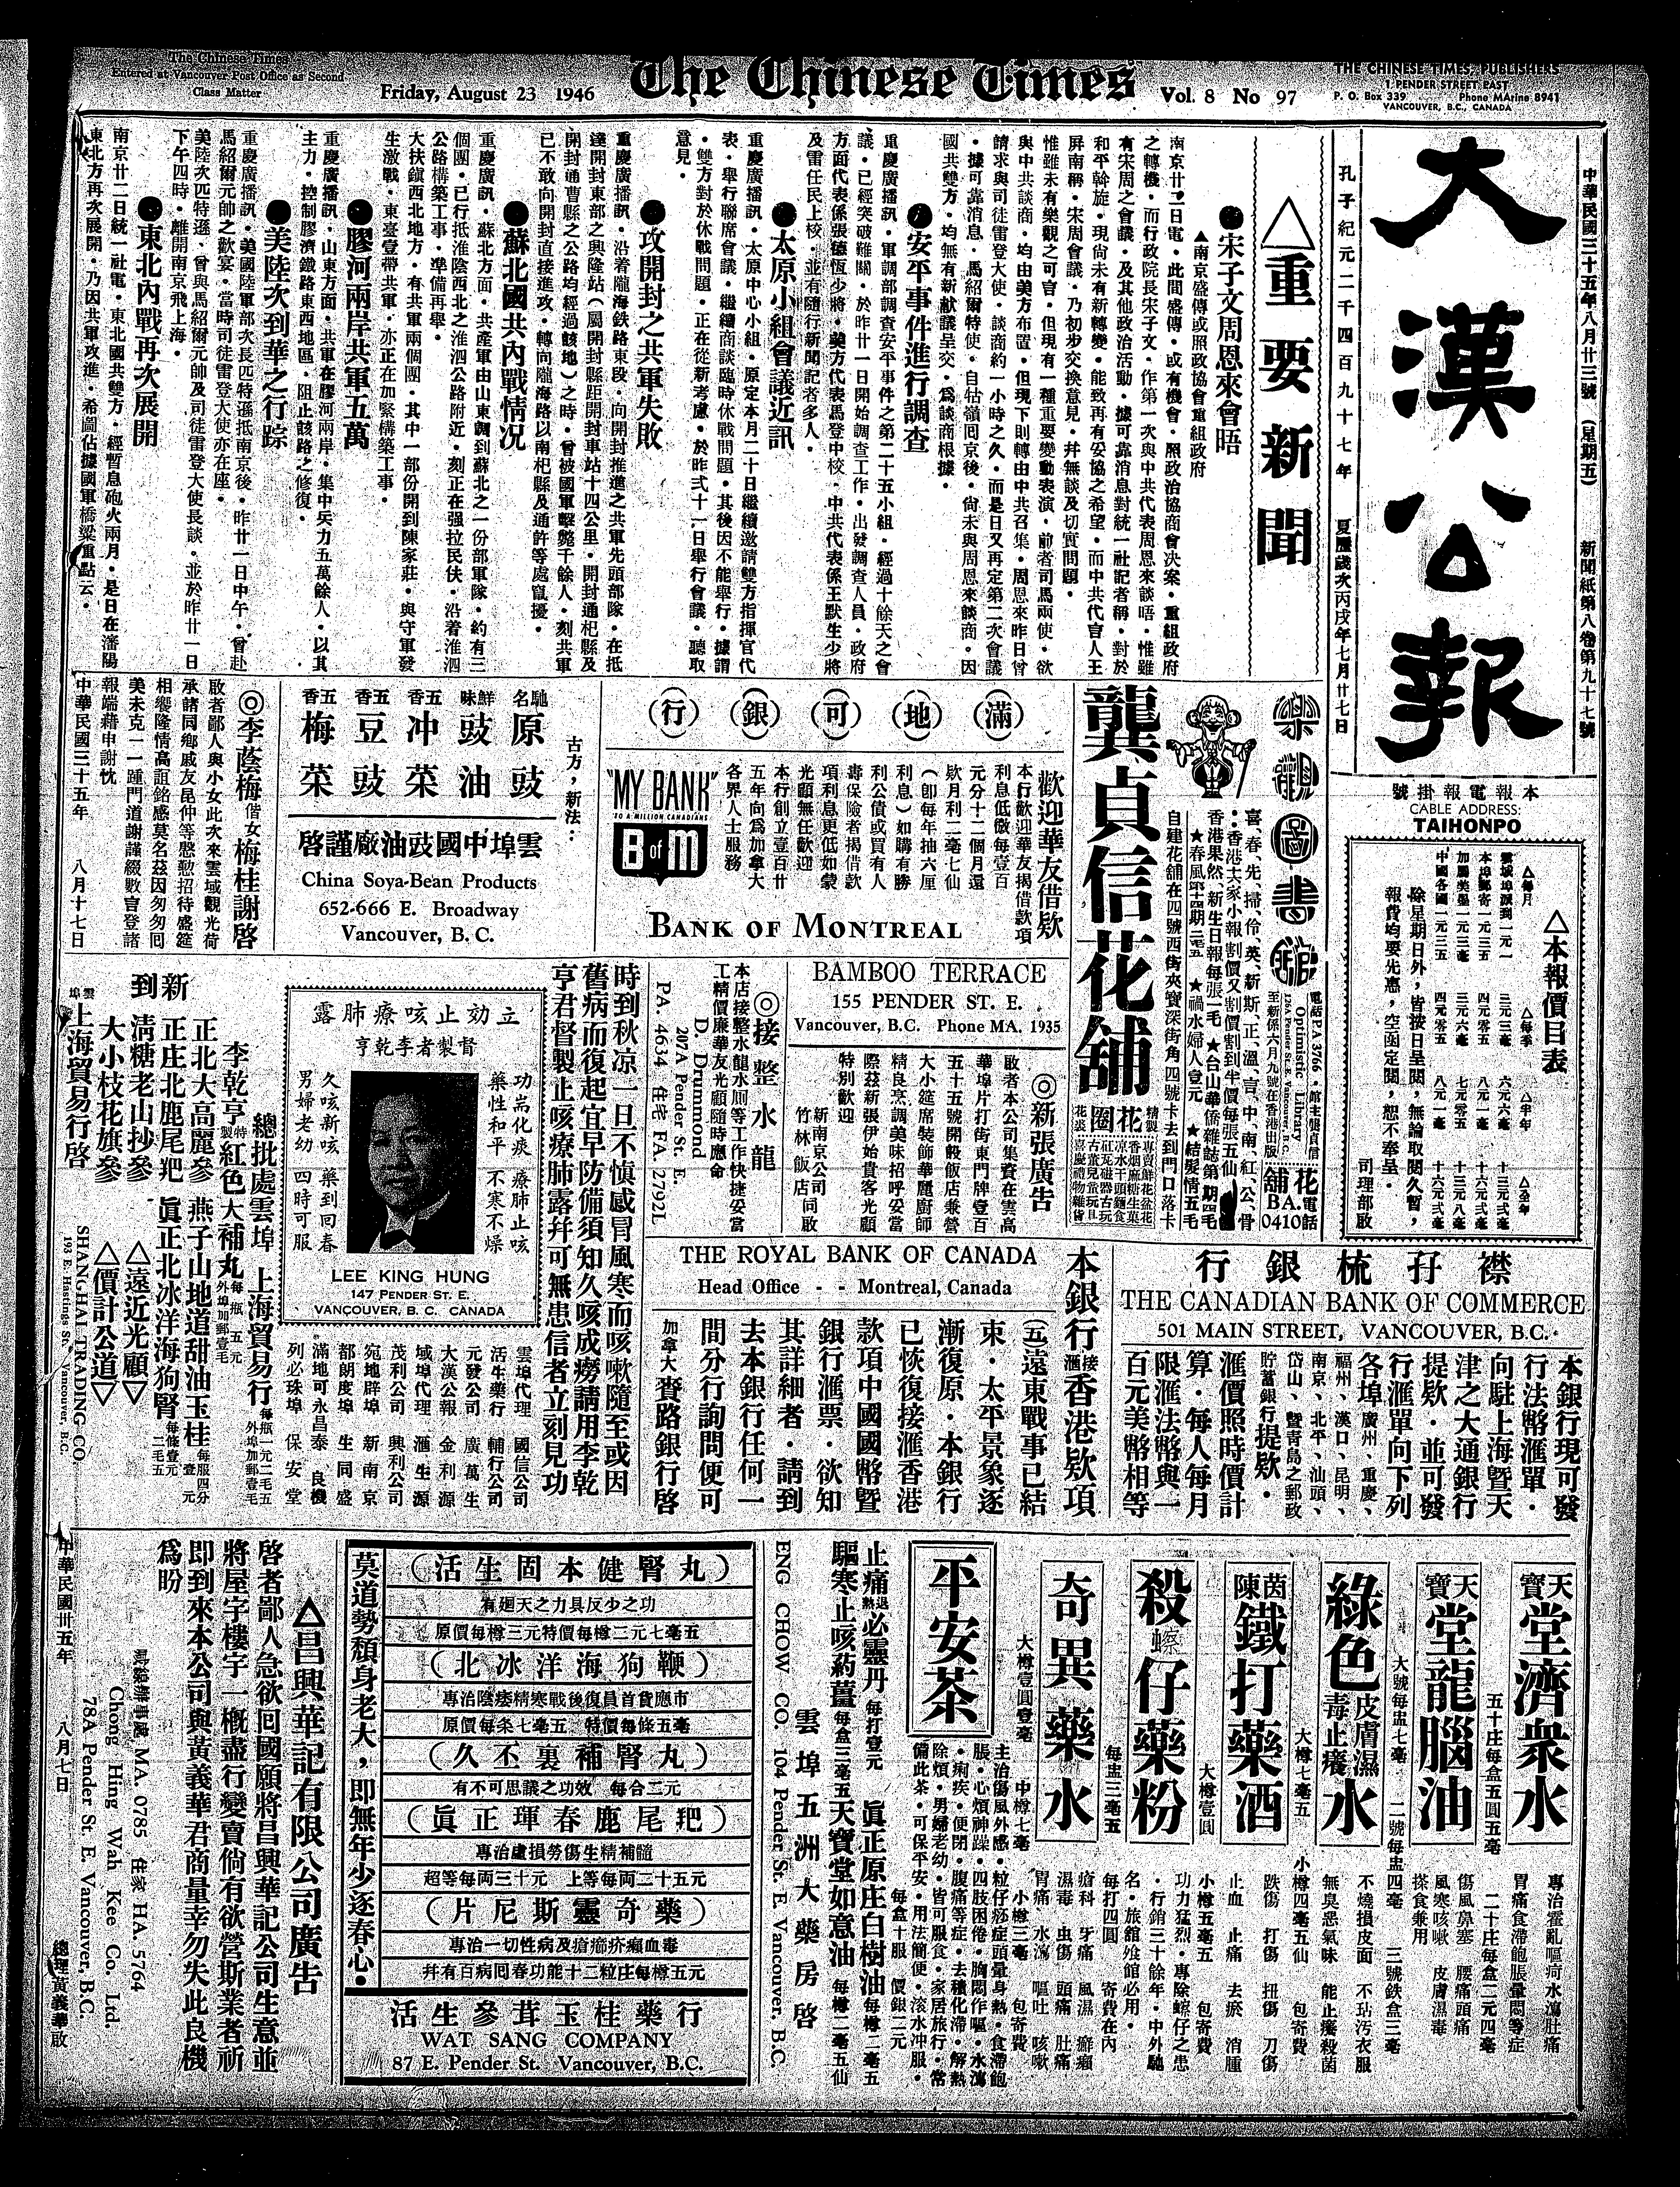 The Chinese Times
Entered at Vancouver Post Office as Second
Class Matter
Friday, August 23 1946
The Chinese Times
Vol. 8 No 97
THE CHINESE TIMES, PUBLISHERS
1 PENDER STREET EAST
P. O. Box 339 Phone MArine 8941
VANCOUVER, B.C., CANADA
中華民國三十五年八月廿三號 (星期五) 新聞紙第八卷第九十七號
大漢公報
孔子紀元二千四百九十七年 夏曆歲次丙戌年七月廿七日
本報電報掛號
CABLE ADDRESS:
TAIHONPO
△本報價目表
除星期日外，皆按日呈閱，無論取閱久暫，
報費均要先惠，空函定閱，恕不奉呈。
司理部啟
△重要新聞
●宋子文周恩來會晤
▲南京盛傳或照政協會重組政府
南京廿二日電・此間盛傳・或有機會・照政治協商會決案・重組政府
之轉機・而行政院長宋子文・作第一次與中共代表周恩來談唔・惟雖
有宋周之會議・及其他政治活動・據可靠消息對統一社記者稱・對於
和平幹旋・現尙未有新轉變・能致再有妥協之希望・而中共代言人王
屏南稱・宋周會議・乃初步交換意見・幷無談及切實問題・
惟雖未有樂觀之可言・但現有一種重要變動表演・前者司馬兩使・欲
與中共談商・均由美方布置・但現下則轉由中共召集・周恩來昨日曾
請求與司徒雷登大使・談商約一小時之久・而是日又再定第二次會議
・據可靠消息・馬紹爾特使・自牯嶺囘京後・尙未與周恩來談商・因
國共雙方・均無有新献議呈交・爲談商根據・
●安平事件進行調查
重慶廣播訊・軍調部調查安平事件之第二十五小組・經過十餘天之會
議・已經突破難關・於昨廿一日開始調查工作・出發調查人員・政府
方面代表係張德恆少將・美方代表馬登中校・中共代表係王默生少將
及雷任民上校・並有隨行新聞記者多人・
●太原小組會議近訊
重慶廣播訊・太原中心小組・原定本月二十日繼續邀請雙方指揮官代
表・舉行聯席會議・繼續商談臨時休戰問題・其後因不能舉行・據謂
・雙方對於休戰問題・正在從新考慮・於昨弍十一日舉行會議・聽取
意見・
●攻開封之共軍失敗
重慶廣播訊・沿着隴海鉄路東段・向開封推進之共軍先頭部隊・在抵
達開封東部之興隆站(屬開封縣距開封車站十四公里・開封通杞縣及
開封通曹縣之公路均經過該地)之時・曾被國軍擊斃千餘人・刻共軍
已不敢向開封直接進攻・轉向隴海路以南杞縣及通許等處竄擾・
●蘇北國共內戰情況
重慶廣訊・蘇北方面・共產軍由山東調到蘇北之一份部軍隊・約有三
個團・已行抵淮陰西北之淮泗公路附近・刻正在强拉民伕・沿着淮泗
公路構築工事・準備再舉・
大扶鎭西北地方・有共軍兩個團・其中一部份開到陳家莊・與守軍發
生激戰・東臺壹帶共軍・亦正在加緊構築工事・
●膠河兩岸共軍五萬
重慶廣播訊・山東方面・共軍在膠河兩岸・集中兵力五萬餘人・以其
主力・控制膠濟鐵路東西地區・阻止該路之修復・
●美陸次到華之行踪
重慶廣播訊・美國陸軍部次長匹特遜抵南京後・昨廿一日中午・曾赴
馬紹爾元帥之歡宴・當時司徒雷登大使亦在座・
美陸次匹特遜・曾與馬紹爾元帥及司徒雷登大使長談・並於昨廿一日
下午四時・離開南京飛上海・
●東北內戰再次展開
南京廿二日統一社電・東北國共雙方・經暫息砲火兩月・是日在瀋陽
東北方再次展開・乃因共軍攻進・希圖佔據國軍橋梁重點云・
樂觀圖書館
電話 P.A. 3766・館主龔貞信
Optimistic Library
龔貞信花舖
花舖電話
BA.
0410
自建花舖在四號西街夾寶深街角四號卡去到門口落卡
精製花圈
滿地可銀行
歡迎華友借欵
本行歡迎華友揭借款項
利息低儆每壹百
元分十二個月還
欵月利二毫七仙
(卽每年抽六厘
利息)如購有勝
利公債或買有人
壽保險者揭借款
項利息更低如蒙
光顧無任歡迎
本行創立壹百廿
五年向爲加拿大
各界人士服務
"MY BANK"
TO A MILLION CANADIANS
B of M
BANK OF MONTREAL
古方，新法：
馳名原豉
鮮味豉油
五香冲菜
五香豆豉
五香梅菜
雲埠中國豉油廠謹啓
China Soya-Bean Products
652-666 E. Broadway
Vancouver, B. C.
◎李蔭梅偕女梅桂謝啓
啟者鄙人與小女此次來雲域觀光荷
承諸同鄉戚友昆仲等慇懃招待盛筵
相饗隆情高誼銘感莫名茲因匆匆囘
美未克一一踵門道謝謹綴數言登諸
報端藉申謝忱
中華民國三十五年 八月十七日
BAMBOO TERRACE
155 PENDER ST. E.
Vancouver, B.C. Phone MA. 1935
◎新張廣告
啟者本公司集資在雲高
華埠片打街東門牌壹百
五十五號開設飯店兼營
大小筵席裝飾華麗廚師
精良烹調美味招呼妥當
際茲新張伊始貴客光顧
特別歡迎
新南京公司
竹林飯店同啟
◎接整水龍
本店接整水龍水厠等工作快捷妥當
工精價廉華友光顧隨時應命
D. Drummond
207A Pender St. E.
PA. 4634 住宅 FA. 2792L
時到秋凉一旦不愼感冒風寒而咳嗽隨至或因
舊病而復起宜早防備須知久咳成癆請用李乾
亨君督製止咳療肺露幷可無患信者立刻見功
立効止咳療肺露
督製者李乾亨
功耑化痰 療肺止咳
藥性和平 不寒不燥
久咳新咳 藥到回春
男婦老幼 四時可服
LEE KING HUNG
147 PENDER ST. E.
VANCOUVER, B. C. CANADA
雲埠代理 國信公司
活生藥行 輔行公司
元發公司 廣萬生
大漢公報 金利源
域埠代理 滙生源
茂利公司 興利公司
宛地辟埠 新南京
都朗度埠 生同盛
滿地可永昌泰 良機
列必珠埠 保安堂
總批處雲埠 上海貿易行
李乾亨特製紅色大補丸
新到
正北大高麗參 燕子山地道甜油玉桂
正庄北鹿尾羓 眞正北冰洋海狗腎
淸糖老山抄參 △遠近光顧▽
大小枝花旗參 △價計公道▽
雲埠上海貿易行啓
SHANGHAI TRADING CO.
193 E. Hastings St. Vancouver, B.C.
襟孖梳銀行
THE CANADIAN BANK OF COMMERCE
501 MAIN STREET, VANCOUVER, B.C.
本銀行現可發
行法幣滙單・
向駐上海暨天
津之大通銀行
提欵・並可發
行滙單向下列
各埠廣州、重慶、
福州、漢口、昆明、
南京、北平、汕頭、
岱山、暨靑島之郵政
貯蓄銀行提欵・
滙價照時價計
算・每人每月
限滙法幣與一
百元美幣相等
THE ROYAL BANK OF CANADA
Head Office - - Montreal, Canada
本銀行接滙香港欵項
(五)遠東戰事已結
束・太平景象逐
漸復原・本銀行
已恢復接滙香港
款項中國國幣暨
銀行滙票・欲知
其詳細者・請到
去本銀行任何一
間分行詢問便可
加拿大賚路銀行啓
天寶堂濟衆水
五十庄每盒五圓五毫
二十庄每盒二元四毫
專治霍亂嘔疴水瀉肚痛
胃痛食滯飽脹暈悶等症
天寶堂龍腦油
大號每盅七毫 二號每盅四毫 三號鉄盒三毫
傷風鼻塞 腰痛頭痛
風寒咳嗽 皮膚濕毒
搽食兼用
綠色皮膚濕毒止癢水
大樽七毫五 小樽四毫五仙 包寄費
不燒損皮面 不玷污衣服
無臭惡氣味 能止癢殺菌
茵陳鐵打藥酒
大樽壹圓 小樽五毫五 包寄費
跌傷 打傷 扭傷 刀傷
止血 止痛 去瘀 消腫
殺蟑仔藥粉
每盅三毫五 每打四圓 寄費在內
功力猛烈・專除蟑仔之患
・行銷三十餘年・中外馳
名・旅舘飱舘必用・
奇異藥水
大樽壹圓壹毫 中樽七毫 小樽三毫 包寄費
瘡科 牙痛 風濕 癬癩
濕毒 虫傷 頭痛 肚痛
胃痛 水瀉 嘔吐 咳嗽
平安茶
主治傷風外感・粒仔痧症頭暈身熱・食滯飽
脹・心煩神躁・四肢困倦・胸悶作嘔・水瀉
・痢疾・便閉・腹痛等症・去積化滯・解熱
除煩・男婦老幼・皆可服食・家居旅行・常
備此茶・可保平安・用法簡便・滾水冲服・
每盒十服 價銀二元
止痛退熱必靈丹 每打壹元 眞正原庄白樹油 每樽二毫五
驅寒止咳葯薑 每盒三毫五 天寶堂如意油 每樽二毫五仙
雲埠五洲大藥房啓
ENG CHOW CO. 104 Pender St. E. Vancouver, B.C.
(活生固本健腎丸)
有廻天之力具反少之功
原價每樽三元特價每樽二元七毫五
(北冰洋海狗鞭)
專治陰痿精寒戰後復員首貨應市
原價每条七毫五 特價每條五毫
(久丕裏補腎丸)
有不可思議之功效 每合二元
(眞正琿春鹿尾羓)
專治虛損勞傷生精補髓
超等每両三十元 上等每両二十五元
(藥奇靈斯尼片)
專治一切性病及瘡癤疥癩血毒
幷有百病囘春功能十二粒庄每樽五元
活生參茸玉桂藥行
WAT SANG COMPANY
87 E. Pender St. Vancouver, B.C.
莫道勢頹身老大，即無年少逐春心・
△昌興華記有限公司廣告
啓者鄙人急欲囘國願將昌興華記公司生意並
將屋宇樓宇一概盡行變賣倘有欲營斯業者祈
即到來本公司與黃義華君商量幸勿失此良機
爲盼
MA. 0785 住家 HA. 5764
Chong Hing Wah Kee Co. Ltd.
78A Pender St. E. Vancouver, B.C.
中華民國卅五年 八月七日 總理黃義華啟